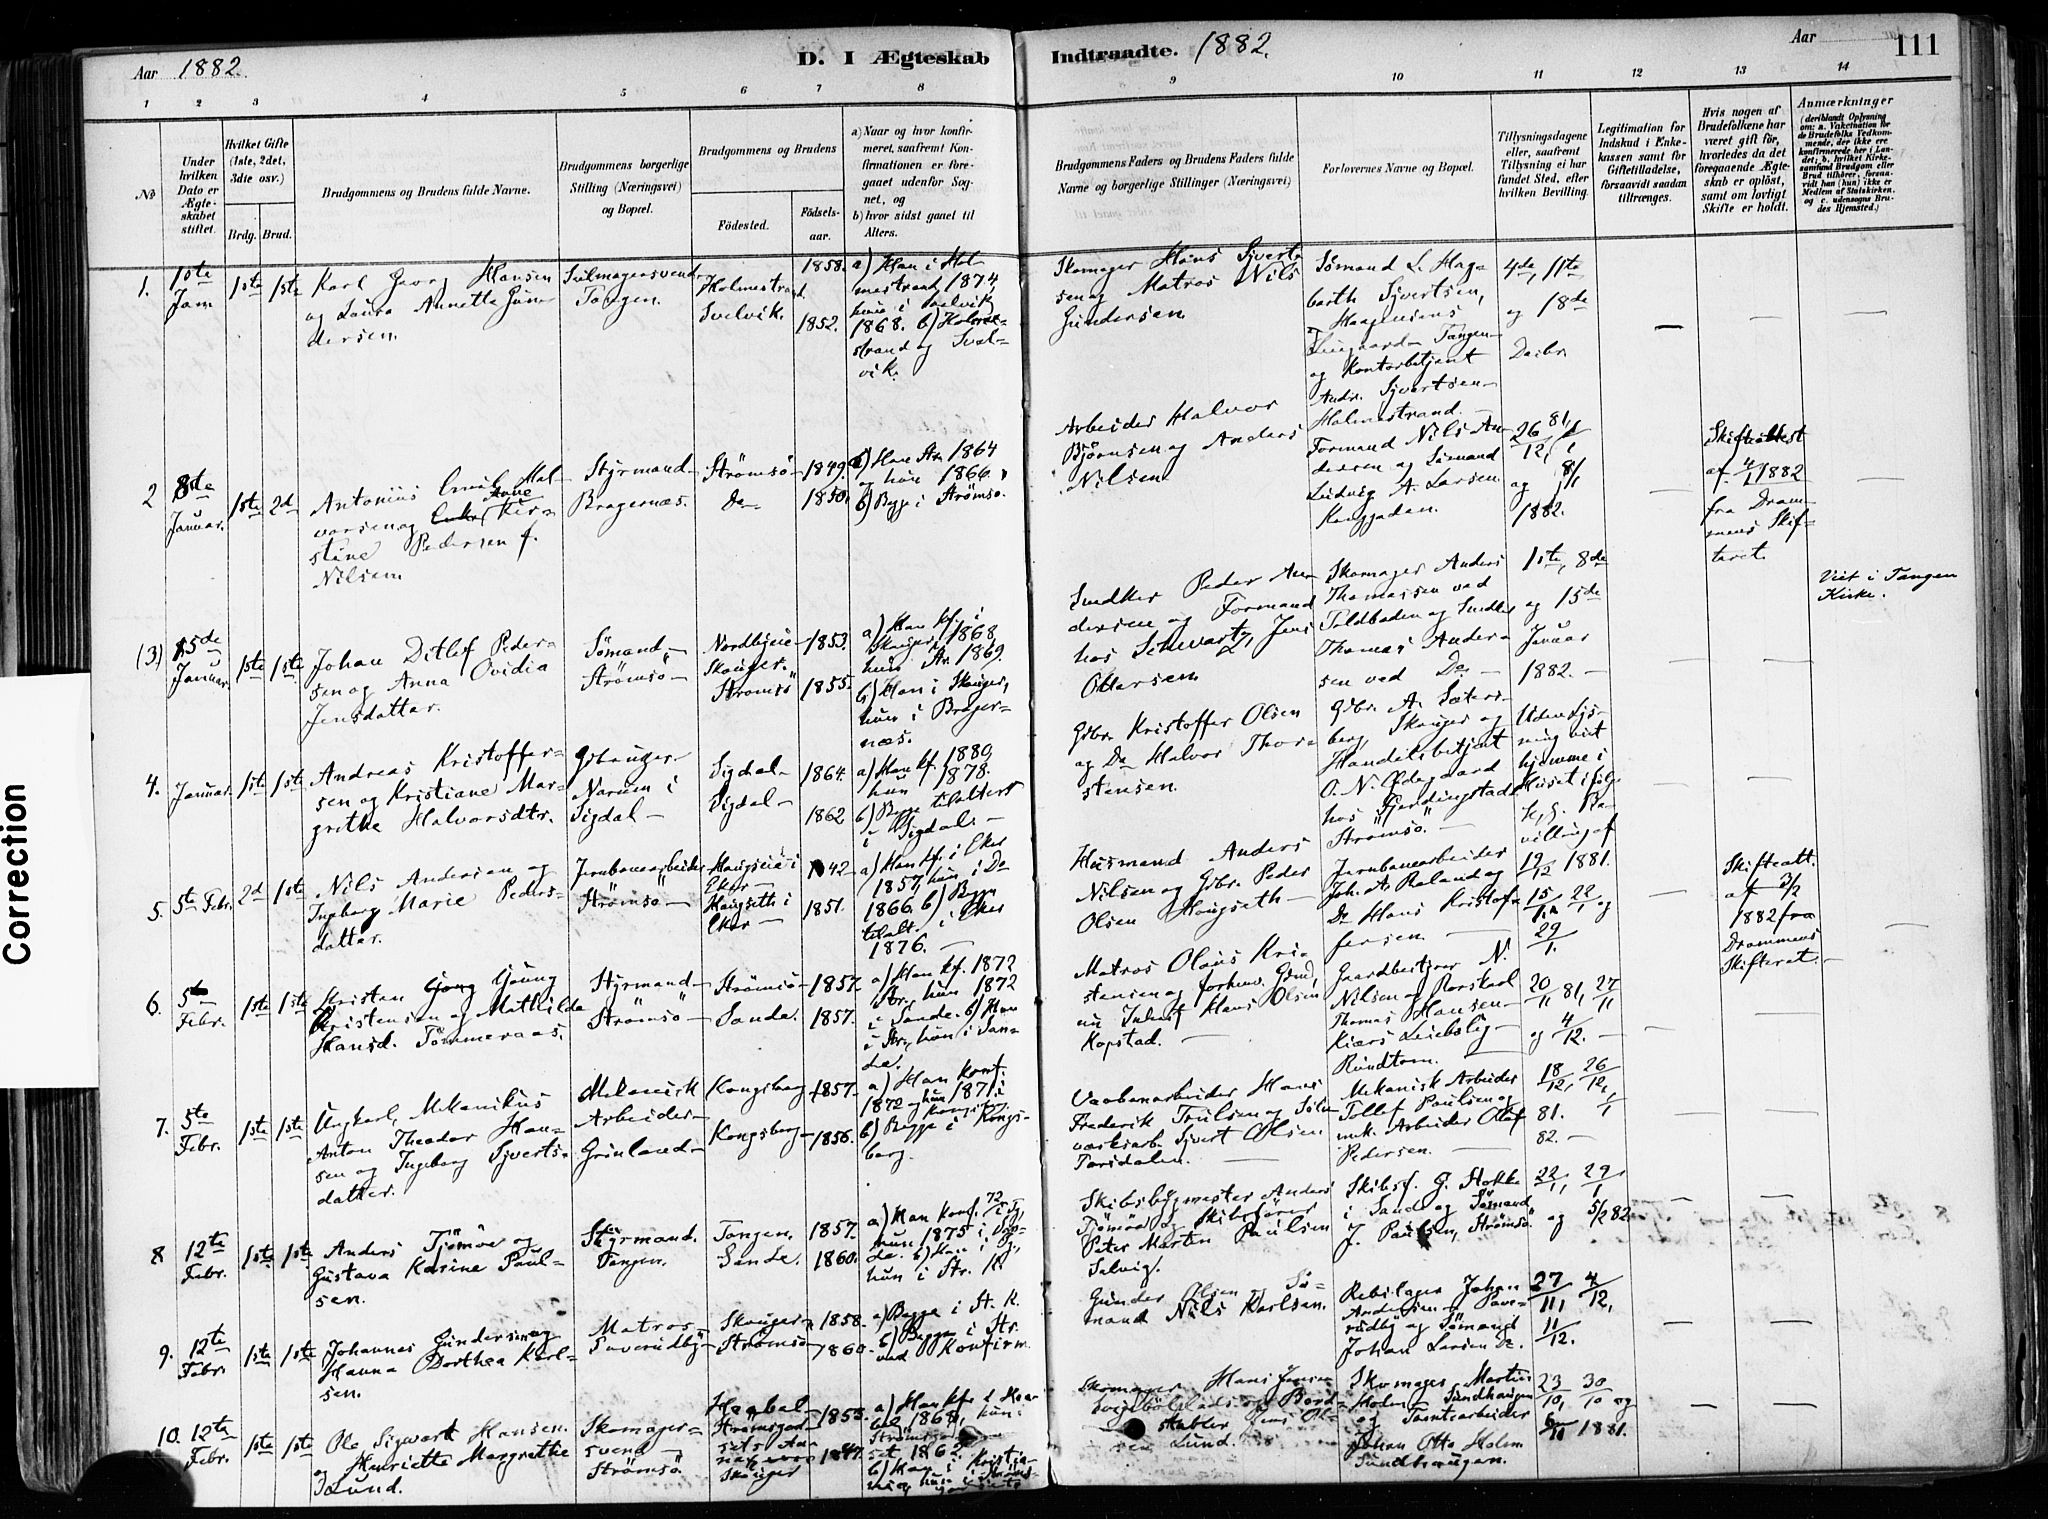 Aar 1882.
D. I Ægteskab Indtraadte. 1882.
Aar
111
1 2 3 4 5 6 7 8 9 10 11 12 13 14
№
Under hvilken Dato er Ægteskabet stiftet.
Hvilket Gifte (1ste, 2det, 3die osv.)
Brdg. Brud.
Brudgommens og Brudens fulde Navne.
Brudgommens borgerlige Stilling (Næringsvei) og Bopæl.
Brudgommens og Brudens
Födested.
Födselsaar.
a) Naar og hvor konfirmeret, saafremt Konfirmationen er foregaaet udenfor Sognet, og
b) hvor sidst gaaet til Alters.
Brudgommens Faders og Brudens Faders fulde Navne og borgerlige Stillinger (Næringsvei)
Forlovernes Navne og Bopæl.
Tillysningsdagene eller, saafremt Tillysning ei har fundet Sted, efter hvilken Bevilling.
Legitimation for Indskud i Enkekassen samt for Giftetilladelse, forsaavidt saadan tiltrænges.
Hvis nogen af Brudefolkene har været gift før, hvorledes da det foregaaende Ægteskab er oplöst, samt om lovligt Skifte er holdt.
Anmærkninger
(deriblandt Oplysning om: a. Vakcination for de Brudefolks Vedkommende, der ikke ere konfirmerede her i Landet; b. hvilket Kirkesamfund Brudgom eller Brud tilhører, forsaavidt han (hun) ikke er Medlem af Statskirken, og c. udensogns Brudes Hjemsted.)
1. 1ste Jan 1ste 1ste
Karl Georg Hansen
og Laura Annette Gundersen.
Sadlmagersvend Tangen.
Holmestrand 1858.
Svelvik. 1852.
a) Han i Holmestrand 1874, hun i Svelvik 1868. b) Holmestrand og Svelvik.
Skomager Hans Sjvertsen og Matros Nils Gundersen.
Sømand L. Hagbarth Sjvertsen,
Tangen
og Kontorbetjent
Andr. Sjvertsen
Holmestrand.
4de, 11te
og 18de
Decbr.
2 8de Januar. 1ste 2d
Antonius Emil Halvorsen og Anne Kirstine Pedersen f. Nilsen.
Styrmand
Bragernæs.
Strömsö 1849.
Do 1850.
a) Han Str. 1864
og hun 1866.
b) Begge i Strömsö.
Arbeider Halvor
Bjørnsen og Anders
Nilsen
Formand Nils Andersen og Sömand
Ludvig A. Larsen
Konggaden.
26/12 81, 1/1
og 8/1
1882.
Skifteattest
af 4/1 1882
fra Drammens Skifteret.
(3) 15de Januar. 1ste 1ste
Johan Ditlef Pedersen og Anna Ovidia
Jensdatter.
Sömand
Strömsö
Nordbyeie Skouger. 1853.
Strömsö 1855.
a) Han kf. i Skouger 1868,
hun Str. 1869.
b) Han i Skouger,
hun i Bragernæs.
Snedker Peder Andersen og Formand
hos Schwartz, Jens
Ottersen
Skomager Anders
Thomassen ved
Toldboden og Snedker
Thomas Andersen ved Do
1ste, 8de
og 15de
Januar
1882.
Viet i Tangen
Kirke.
4. Januar. 1ste 1ste
Andreas Kristoffersen og Kristiane Margrethe Halvorsdtr.
Gdbruger
Narum i
Sigdal
Sigdal 1864.
Sigdal 1862
a) Han kf. 1880
hun 1878.
b) Begge tilalters
i Sigdal.
Gdbr. Kristoffer Olsen
og Do Halvor Thorstensen.
Gdbr. A. Sætersberg, Skouger og
Handelsbetjent
O. N. Ødegaard
hos Fjerdingstad
Strömsö.
Udenlysning viet
hjemme i
Huset ifølge
Bevilling af
19/12 1881.
5. 5te Febr. 2d 1ste
Nils Andersen og
Ingeborg Marie Pedersdatter.
Jernbanearbeider
Strömsö
Hougseie i Eker 1842
Hougseth i Eker 1851.
a) Han kf. i Eker
1857, hun i Do
1866. b) Begge
tilalt. i Eker
1876.
Husmand Anders
Nilsen og Gdbr. Peder
Olsen Hougseth
Jernbanearbeider
Joh. A. Roland og
Do Hans Kristoffersen.
15/1, 22/1 og
29/1.
Skifteatt.
af 3/2
1882 fra
Drammens
Skifteret.
6. 5te Febr. 1ste 1ste
Kristian Gjøng
Kristensen og Mathilde
Hansd. Tömmeraas.
Styrmand
Strömsö
Strömsö 1857.
Sande. 1857.
a) Han kf. 1872
Str., hun 1872
i Sande. b) Han
i Str., hun i Sande.
Matros Olaus Kristensen og forhenv. Gdmd,
nu Inderst Hans Olsen
Kopstad.
Gaardbestyrer N.
Nilsen og
Thomas Hansen
Kiærs
Rundtom.
20/11 81, 27/11
og 4/12.
7. 5te Febr. 1ste 1ste
Ungkarl, Mekanikus
Anton Theodor Hansen og Ingeborg Sjvertsdatter.
Mekanisk
Arbeider
Grönland
Kongsberg 1857.
Kongsberg 1856.
a) Han konf.
1872 og hun 1871 i
Kongsberg
b) Begge i Kongsberg.
Vaabenarbeider Hans
Frederik Poulsen og Sölvværksarb. Sjvert Olsen
Torsdalen.
Mekanisk Arbeider
Tollef Paulsen og
mek. Arbeider Olaf
Pedersen.
18/12, 26/12,
81. 1/1
82.
8 12te Febr. 1ste 1ste
Anders Tjömöe og
Gustava Karine Paulsen.
Styrmand.
Tangen.
Tangen. 1857.
Sande. 1860.
a) Han konf. 72 i Tg,
hun 1875 i Sande. b) Han i Tg.,
hun i Str. K.
Skibsbygmester Anders
Tjömöe og Skibsförer
Peter Martin Paulsen
Selvig.
Skibsf. G. Stokke
i Sand og Sömand
J. Paulsen, Strömsö
22/1, 29/1
og 5/2 82
9. 12te Febr. 1ste 1ste
Johannes Gundersen og
Hanna Dorthea Karlsen.
Matros
Skouger 1858.
Strömsö 1860.
a) Begge i St. K.
b) Begge i Str.
ved Konfirm.
Gunder Olsen og Sömand Nils Karlsen.
Rebslager Johan
Andersen
og Sömand
Johan Larsen Do.
27/11, 4/12,
11/12.
10. 12te Febr. 1ste 1ste
Ole Sigwart Hansen
og Henriette Margrethe
Lund.
Skomagersvend
Strömsö
1855.
Skouger 1847.
1862
Skomager Hans Jensen
Jens Olsen Lund.
Skomager Martin
Holm, Sundhaugen
og Tomtearbeider
Johan Otto Holm
Sundhaugen.
23/10, 30/10 og
6/11 1881.
Correction